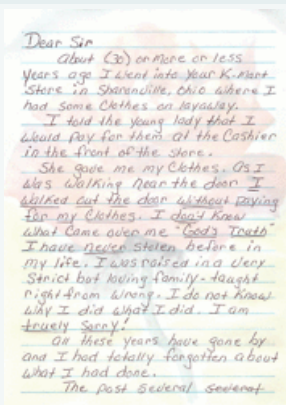 Dear Sir
About (30) or more or less
years ago I went into your K-mart
Store in Sharonville, Ohio where I
had some Clothes on layaway.
I told the young lady that I
would pay for them at the Cashier
in the front of the store.
She gave me my Clothes. As I
was walking near the door I
walked out the door without paying
for my Clothes. I don't know
what came over me "God's Truth"
I have never stolen before in
my life. I was raised in a very
Strict but loving family-taught
right from wrong. I do not know
why I did what I did. I am
truely sorry!
All these years have gone by
and I had totally forgotten about
what I had done.
The past several several